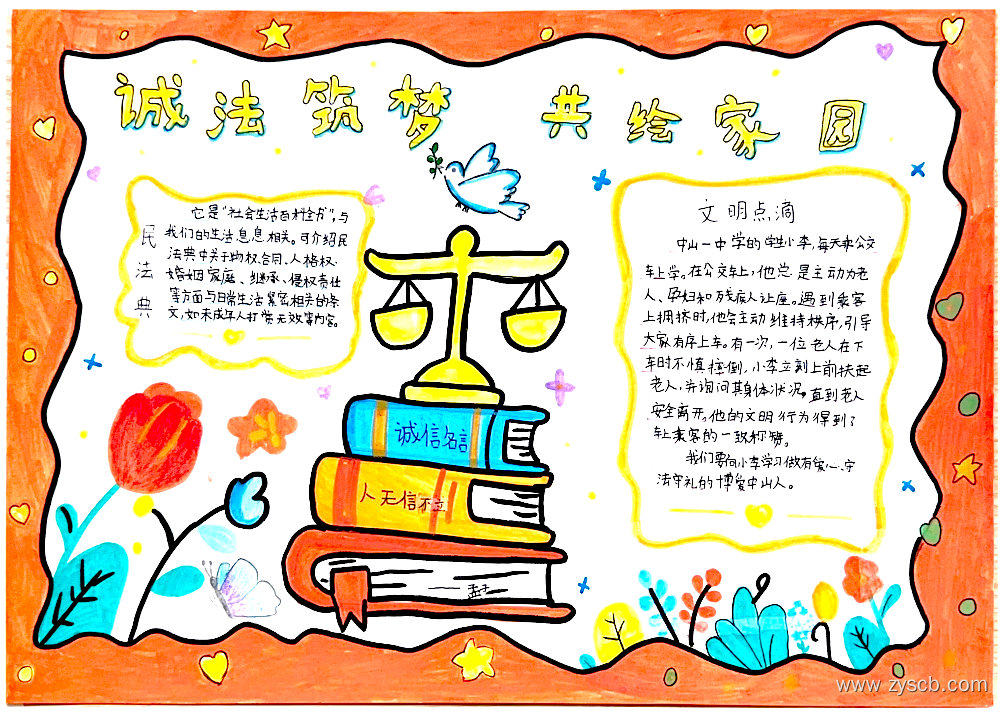 诚法筑梦 共绘家园
民法典
它是“社会生活百科全书”，与
我们的生活息息相关。可介绍民
法典中关于物权、合同、人格权、
婚姻家庭、继承、侵权责任
等方面与日常生活紧密相关的条
文，如未成年人打赏无效等内容。
文明点滴
中山一中学的学生小李，每天乘公交
车上学。在公交车上，他总是主动为老
人、孕妇和残疾人让座。遇到乘客
上拥挤时，他会主动维持秩序，引导
大家有序上车。有一次，一位老人在下
车时不慎摔倒，小李立刻上前扶起
老人，并询问其身体状况，直到老人
安全离开。他的文明行为得到了
车上乘客的一致称赞。
我们要向小李学习做有爱心、守
法守礼的博爱中山人。
诚信名言
人无信不立
www.zyscb.com